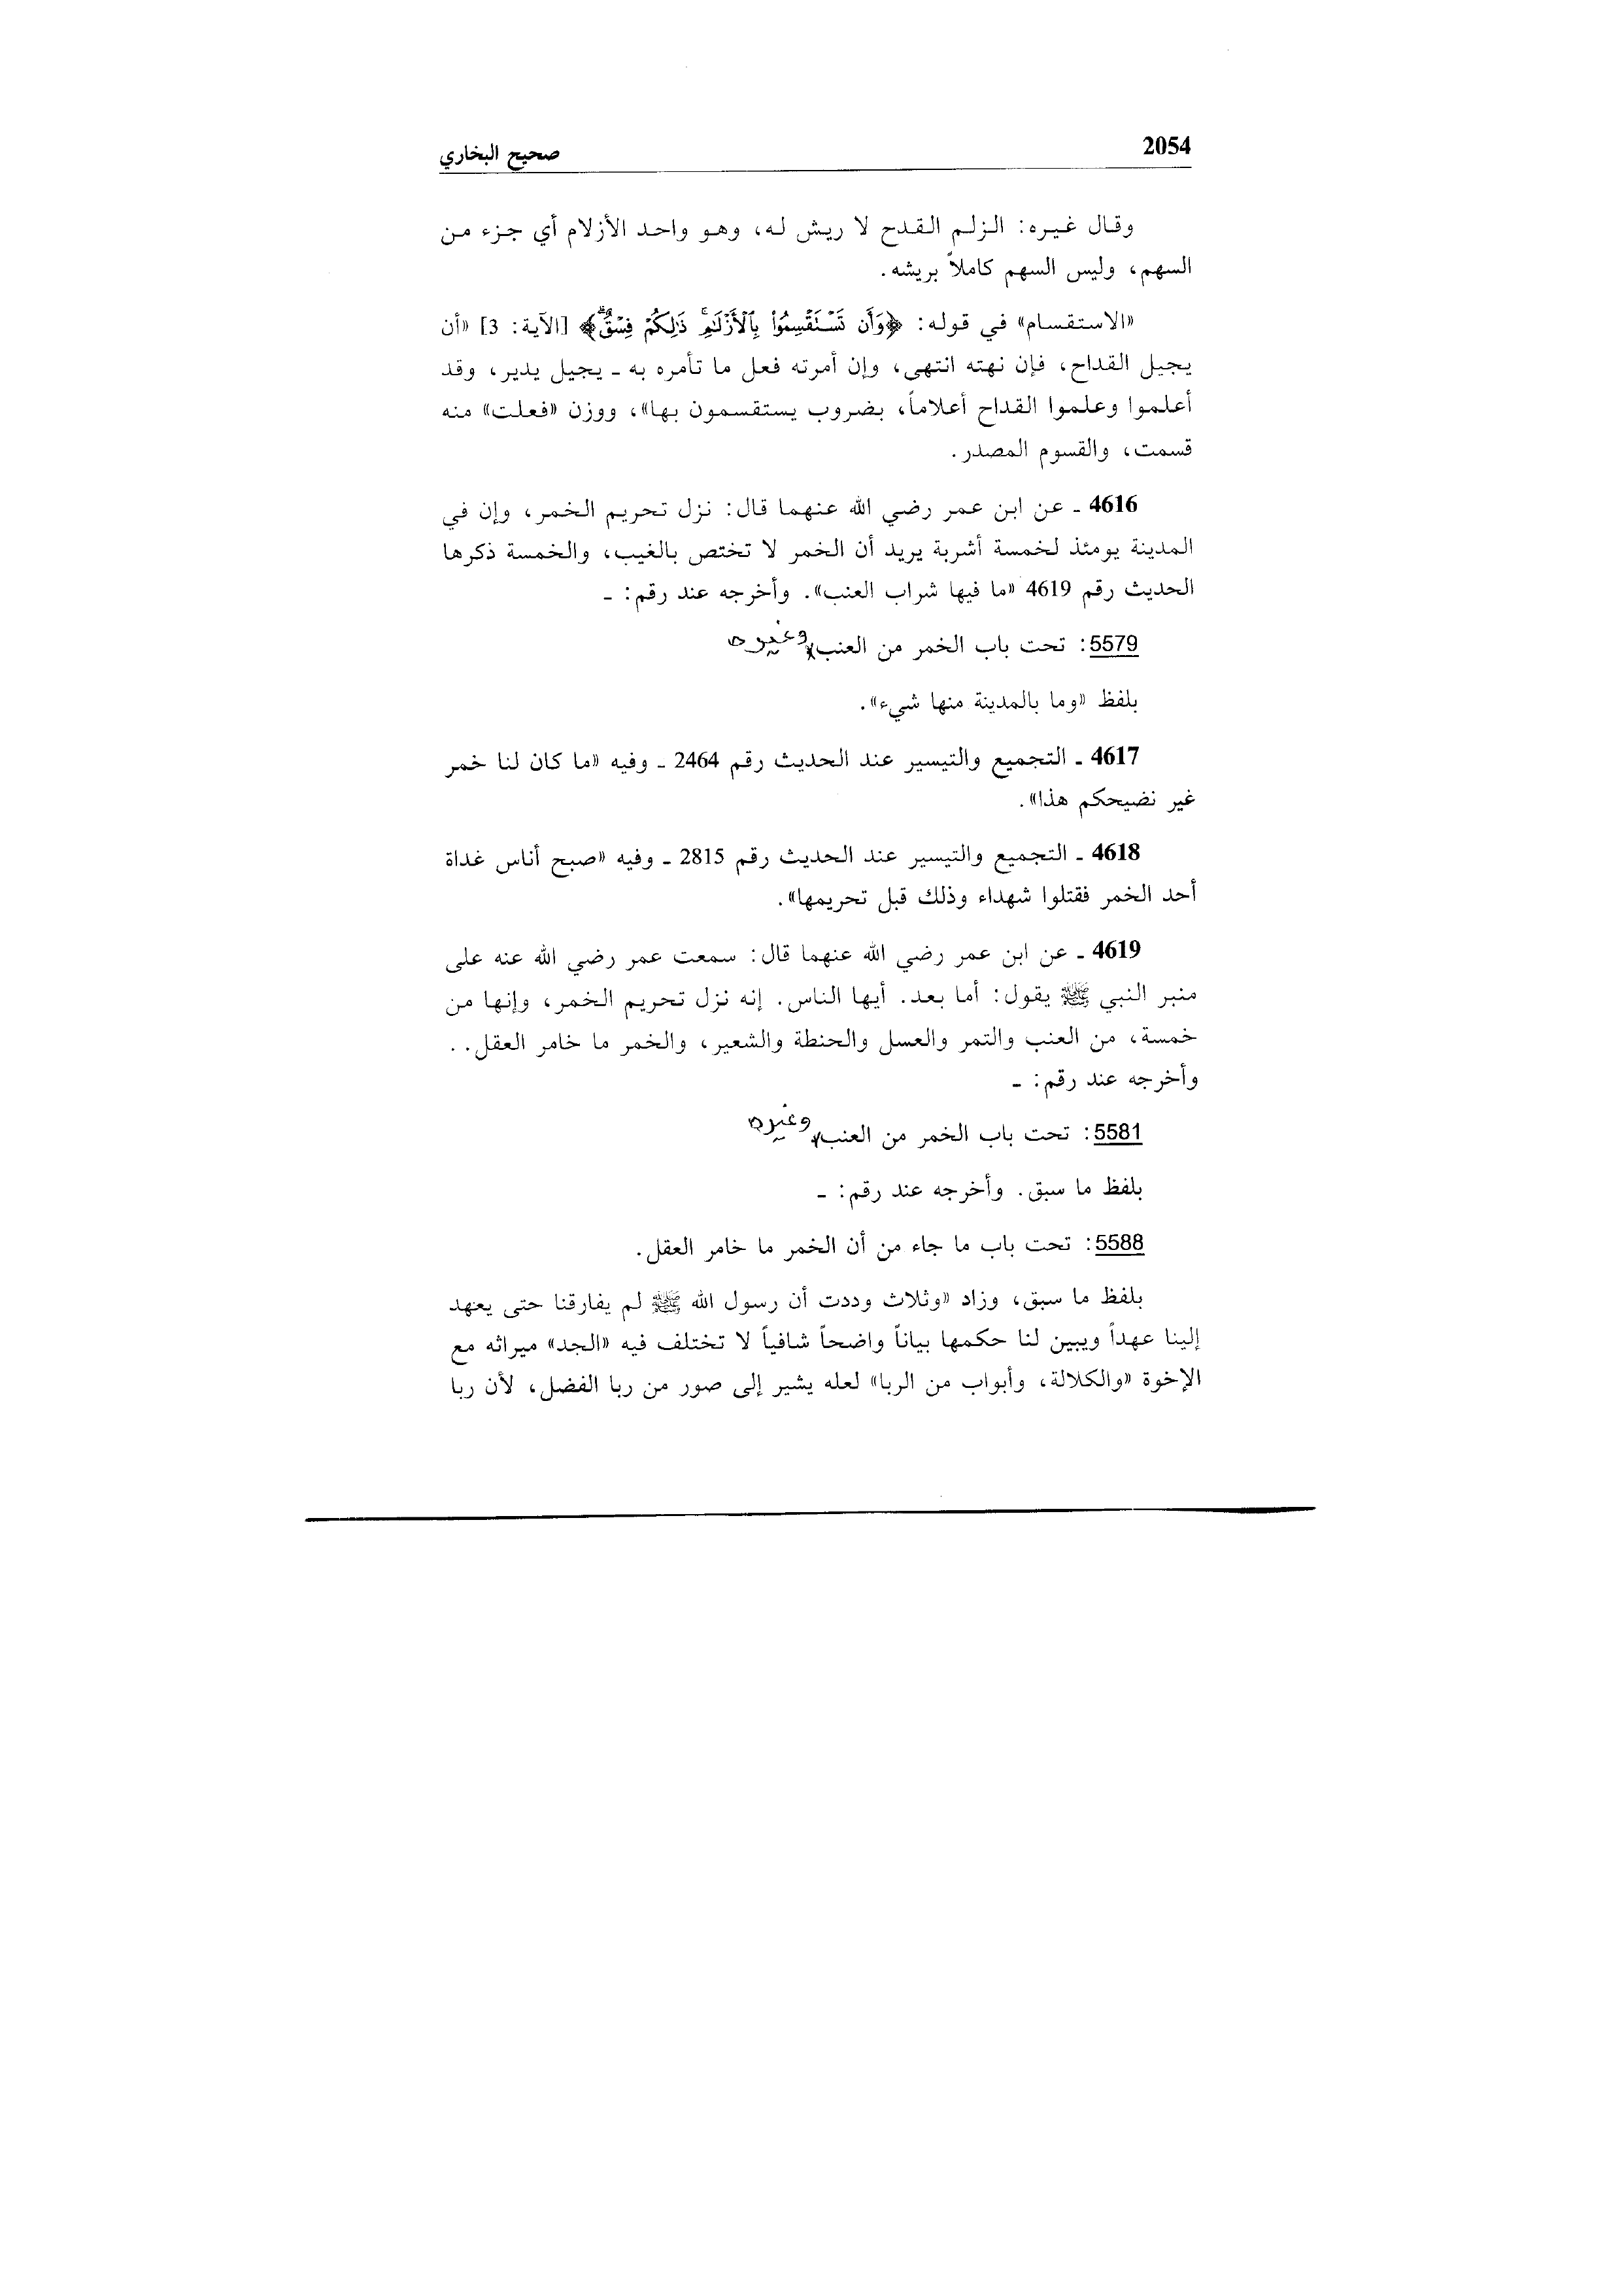 2054
صحيح البخاري
وقال غيره: الزلم القدح لا ريش له، وهو واحد الأزلام أي جزء من
السهم، وليس السهم كاملاً بريشه.
«الاستقسام» في قوله: ﴿وَأَن تَسْتَقْسِمُوا بِالْأَزْلَٰمِ ۚ ذَٰلِكُمْ فِسْقٌ ۗ﴾ [الآية: 3] «أن
يجيل القداح، فإن نهته انتهى، وإن أمرته فعل ما تأمره به ـ يجيل يدير، وقد
أعلموا وعلموا القداح أعلاماً، بضروب يستقسمون بها»، ووزن «فعلت» منه
قسمت، والقسوم المصدر.
4616 ـ عن ابن عمر رضي الله عنهما قال: نزل تحريم الخمر، وإن في
المدينة يومئذ لخمسة أشربة يريد أن الخمر لا تختص بالغيب، والخمسة ذكرها
الحديث رقم 4619 «ما فيها شراب العنب». وأخرجه عند رقم: ـ
5579: تحت باب الخمر من العنب وغيره
بلفظ «وما بالمدينة منها شيء».
4617 ـ التجميع والتيسير عند الحديث رقم 2464 ـ وفيه «ما كان لنا خمر
غير نضيحكم هذا».
4618 ـ التجميع والتيسير عند الحديث رقم 2815 ـ وفيه «صبح أناس غداة
أحد الخمر فقتلوا شهداء وذلك قبل تحريمها».
4619 ـ عن ابن عمر رضي الله عنهما قال: سمعت عمر رضي الله عنه على
منبر النبي ﷺ يقول: أما بعد. أيها الناس. إنه نزل تحريم الخمر، وإنها من
خمسة، من العنب والتمر والعسل والحنطة والشعير، والخمر ما خامر العقل. .
وأخرجه عند رقم: ـ
5581: تحت باب الخمر من العنب وغيره
بلفظ ما سبق. وأخرجه عند رقم: ـ
5588: تحت باب ما جاء من أن الخمر ما خامر العقل.
بلفظ ما سبق، وزاد «وثلاث وددت أن رسول الله ﷺ لم يفارقنا حتى يعهد
إلينا عهداً ويبين لنا حكمها بياناً واضحاً شافياً لا تختلف فيه «الجد» ميراثه مع
الإخوة «والكلالة، وأبواب من الربا» لعله يشير إلى صور من ربا الفضل، لأن ربا